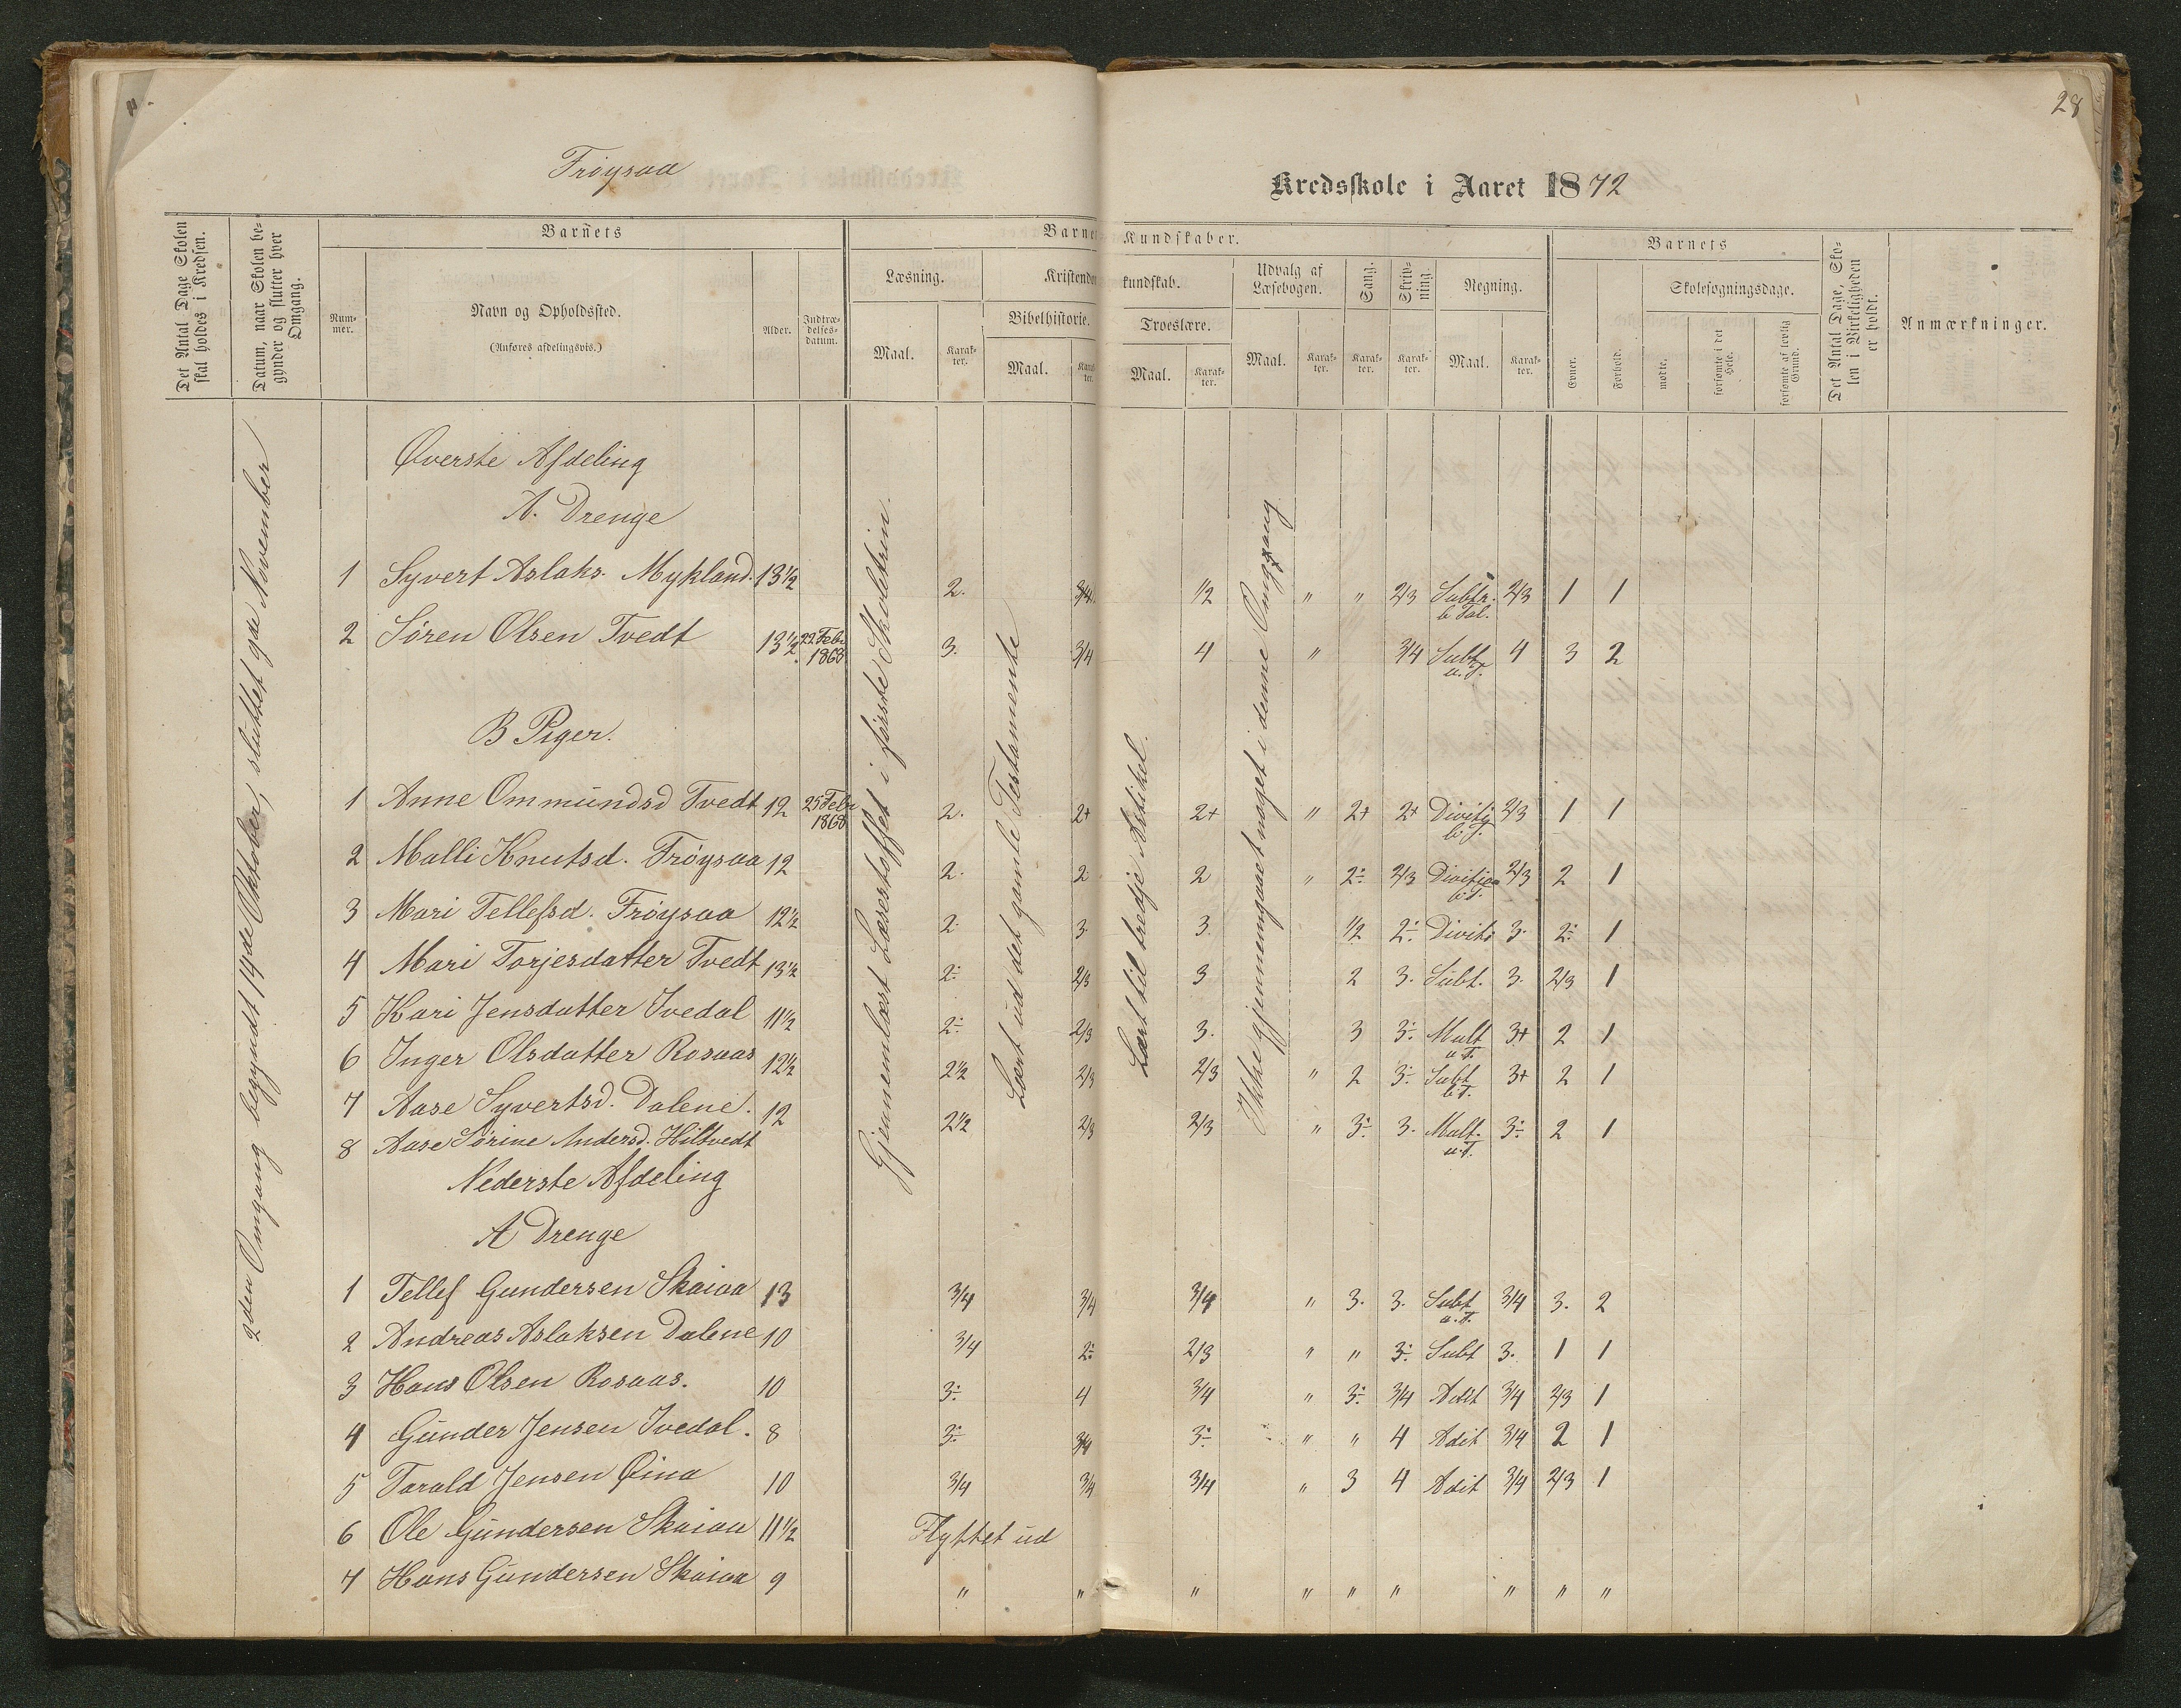 28
Frøysaa
Kredsskole i Aaret 1872
Det Antal Dage Skolen skal holdes i Kredsen.
Datum, naar Skolen begynder og slutter hver Omgang.
Barnets
Nummer.
Navn og Opholdssted.
(Anføres afdelingsvis.)
Alder.
Indtrædelsesdatum.
Barnets Kundskaber.
Læsning.
Maal.
Karakter.
Kristendomskundskab.
Bibelhistorie.
Maal.
Karakter.
Troeslære.
Maal.
Karakter.
Udvalg af Læsebogen.
Maal.
Karakter.
Sang.
Karakter.
Skrivning.
Karakter.
Regning.
Maal.
Karakter.
Barnets
Evner.
Forhold.
Skolesøgningsdage.
mødte.
forsømte i det Hele.
forsømte af lovlig Grund.
Det Antal Dage, Skolen i Virkeligheden er holdt.
Anmærkninger.
2den Omgang begyndt 14de Oktober, sluttet 9de November
Gjennemlæst Læsestoffet i første Skoletrin.
Lært ud det gamle Testamente
Lært til tredje Artikel.
Ikke gjennemgaaet noget i denne Omgang
Øverste Afdeling
A. Drenge
1 Syvert Aslaks. Mykland. 13½ 2. 3/4 ½ " " 2/3 Subtr. b Tal. 2/3 1 1
2 Søren Olsen Tvedt 13½ 22 Febr 1868 3. 3/4 4 " 3/4 Subtr u. T. 4 3 2
B Piger.
1 Anne Ommundsd Tvedt 12 25 Febr 1868 2. 2+ 2+ " 2+ 2+ Divitio b. T. 2/3 1 1
2 Malli Knutsd. Frøysaa 12 2. 2 2 " 2÷ 2/3 Divition b. T. 2/3 2 1
3 Mari Tellefsd. Frøysaa 12½ 2. 3. 3. ½ 2÷ Diviti 3. 2÷ 1
4 Mari Torjesdatter Tvedt 13½ 2÷ 2/3 3 2 3. Subt. 3. 2/3 1
5 Kari Jensdatter Ivedal 11½ 2÷ 2/3 3. 3 3÷ Mult u T. 3+ 2 1
6 Inger Olsdatter Rosaas 12½ 2½ 2/3 2/3 " 2 3÷ Subt b T. 3+ 2 1
7 Aase Syvertsd. Dalene. 12 2½ 2/3 2/3 " 3÷ 3. Mult. u. T. 3÷ 2 1
8 Aase Sørine Andersd. Hiltvedt
Nederste Afdeling
A Drenge
1 Tellef Gundersen Skaiaa 13 3/4 3/4 3/4 " 3. 3. Subt u. T. 3/4 3. 2
2 Andreas Aslaksen Dalene 10 3/4 2÷ 2/3 " " 3÷ Subt 3. 1 1
3 Hans Olsen Rosaas. 10 3÷ 4 3/4 " 3÷ 3/4 Adit 3/4 2/3 1
4 Gunder Jensen Ivedal. 8 3÷ 3/4 3÷ " " 4 Adit 3/4 2 1
5 Tarald Jensen Øina 10 3/4 3/4 3/4 " 3 4 Adit 3/4 2/3 1
6 Ole Gundersen Skaiaa 11½ Flyttet ud
7 Hans Gundersen Skaiaa 9 " " " " " " " " "